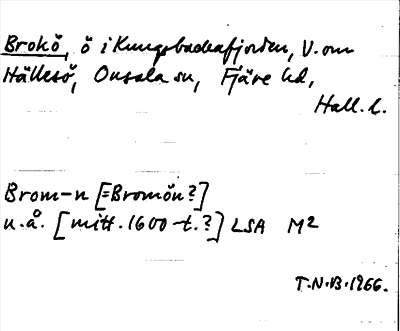 Brokö, ö i Kungsbackafjorden, V. om
Hällesö, Onsala sn, Fjäre hd,
Hall. l.
Brom-n [=Bromön?]
n.å. [mitt. 1600-t.?] LSA M2
T.N.B. 1966.